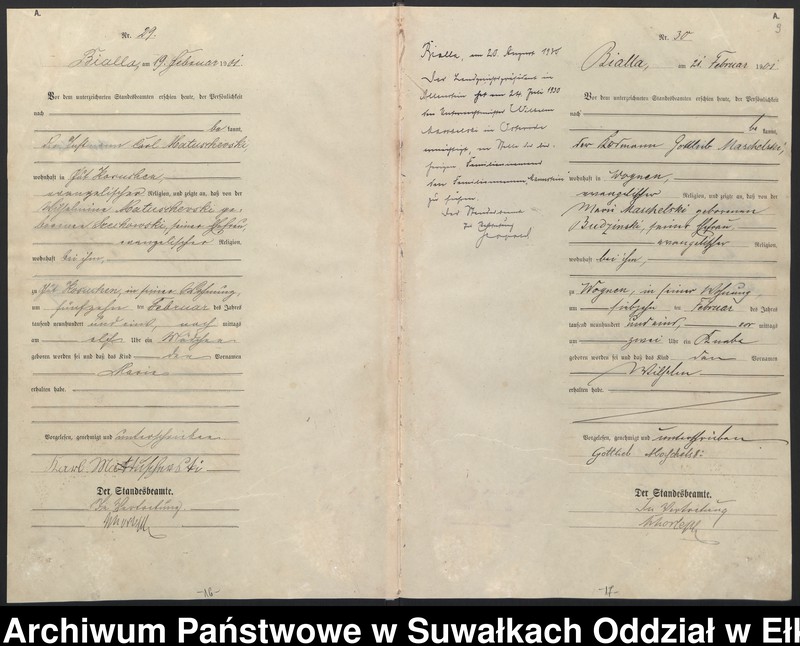 A.
Nr. 29.
Bialla, am 19. Februar 1901
Vor dem unterzeichneten Standesbeamten erschien heute, der Persönlichkeit
nach
be kannt,
Karl Matuschewski,
wohnhaft in Gut
evangelischer Religion, und zeigte an, daß von der
Wilhelmine
seiner Ehefrau,
evangelischer Religion,
wohnhaft bei ihm,
zu Gut in seiner Wohnung,
am fünfzehn ten Februar des Jahres
tausend neunhundert und eins, nach mittags
um elf Uhr ein Mädchen
geboren worden sei und daß das Kind den Vornamen
Marie
erhalten habe.
Vorgelesen, genehmigt und unterschrieben
Karl
Der Standesbeamte.
In Vertretung.
-16-
Bialla, am 20. August 19
Der Landgerichtspräsident in
Allenstein hat am 24. Juli 1930
den Wilhelm
in Osterode
ermächtigt, an Stelle des bis-
herigen Familiennamens
den Familiennamen
zu führen.
Der Standesbeamte
In Vertretung
A.
9
Nr. 30
Bialla, am 21. Februar 1901
Vor dem unterzeichneten Standesbeamten erschien heute, der Persönlichkeit
nach
be kannt,
der Losmann Gottlieb
wohnhaft in Wognen,
evangelischer Religion, und zeigte an, daß von der
Marie geborenen
Budzinski, seiner Ehefrau
evangelischer Religion,
wohnhaft bei ihm,
zu Wognen, in seiner Wohnung,
am siebzehn ten Februar des Jahres
tausend neunhundert und eins, vor mittags
um zwei Uhr ein Knabe
geboren worden sei und daß das Kind den Vornamen
Wilhelm
erhalten habe.
Vorgelesen, genehmigt und unterschrieben
Gottlieb
Der Standesbeamte.
In Vertretung
-17-
Archiwum Państwowe w Suwałkach Oddział w Ełk